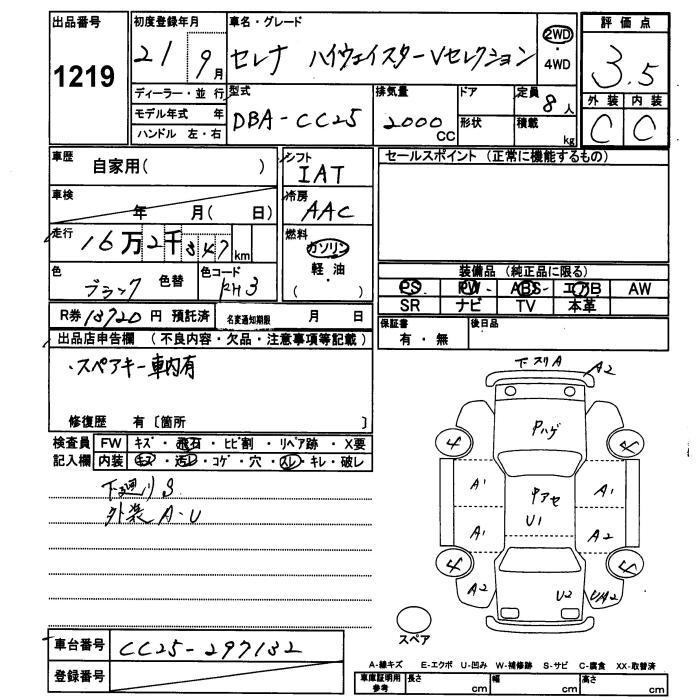 出品番号 初度登録年月 車名・グレード 評価点
1219 21 9月 セレナ ハイウェイスターVセレクション 2WD・4WD 3.5
ディーラー・並行 型式 排気量 ドア 定員 8人 外装 内装
モデル年式 年 DBA-CC25 2000cc 形状 積載 kg C C
ハンドル 左・右
車歴 自家用( ) シフト IAT セールスポイント (正常に機能するもの)
車検 年 月( 日) 冷房 AAC
走行 16万2千347km 燃料 ガソリン 軽油 ( )
色 ブラック 色替 色コード KH3
装備品 (純正品に限る)
PS PW ABS エアB AW
SR ナビ TV 本革
R券 13720円 預託済 名変通知期限 月 日 保証書 有・無 後日品
出品店申告欄 (不良内容・欠品・注意事項等記載)
・スペアキー車内有
修復歴 有 〔箇所 〕
検査員 FW キズ・飛石・ヒビ割・リペア跡・X要
記入欄 内装 キズ・汚レ・コゲ・穴・スレ・キレ・破レ
下廻りS
外装A・U
下スリA A2
Pハゲ
4 4
A1 中アセ A1
A1 U1 A2
4 4
A2 U2 UA2
スペア
車台番号 CC25-297132
登録番号
A-線キズ E-エクボ U-凹み W-補修跡 S-サビ C-腐食 XX-取替済
車庫証明用参考 長さ cm 幅 cm 高さ cm